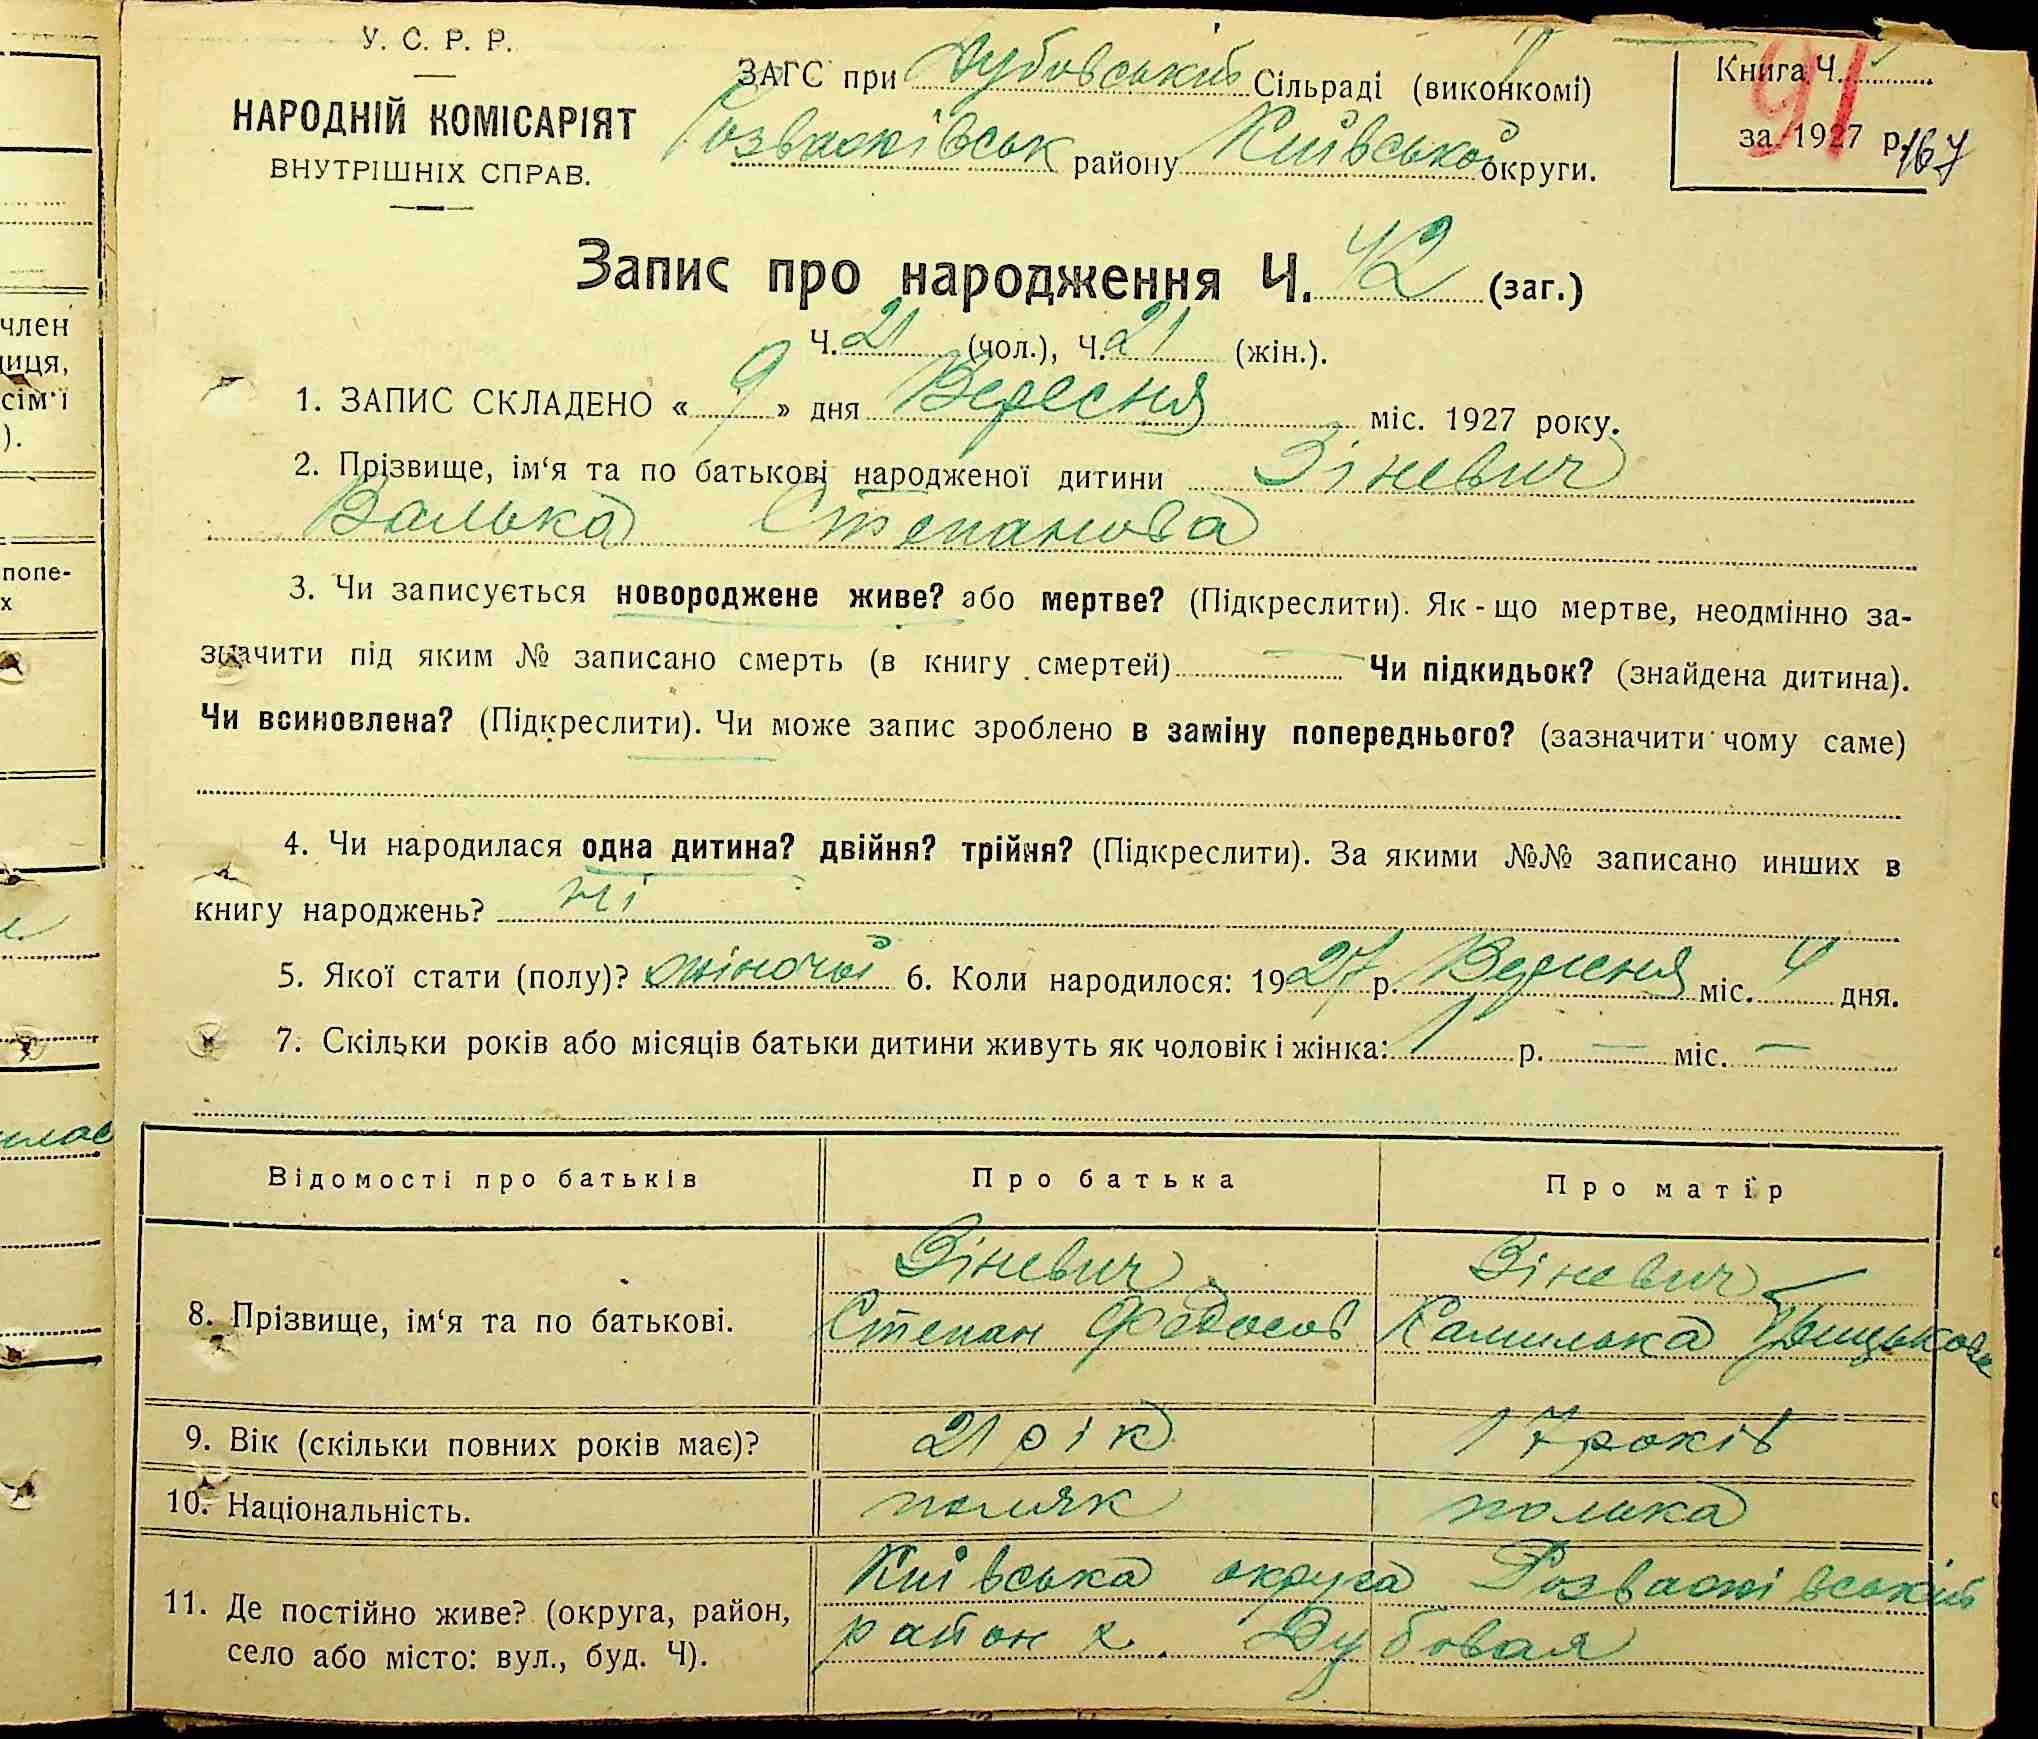 У. С. Р. Р.
НАРОДНІЙ КОМІСАРІЯТ
ВНУТРІШНІХ СПРАВ.
ЗАГС при Дубовській Сільраді (виконкомі)
Розважівськ району Київської округи.
Книга Ч.
91
за 1927 р. 167
Запис про народження Ч. 42 (заг.)
Ч. 21 (чол.), Ч. 21 (жін.).
1. ЗАПИС СКЛАДЕНО « 9 » дня Вересня міс. 1927 року.
2. Прізвище, ім‘я та по батькові народженої дитини Зіневич
Валька Степанова
3. Чи записується новороджене живе? або мертве? (Підкреслити). Як-що мертве, неодмінно за-
значити під яким № записано смерть (в книгу смертей) — Чи підкидьок? (знайдена дитина).
Чи всиновлена? (Підкреслити). Чи може запис зроблено в заміну попереднього? (зазначити чому саме)
4. Чи народилася одна дитина? двійня? трійня? (Підкреслити). За якими №№ записано инших в
книгу народжень? ні
5. Якої стати (полу)? жіночої 6. Коли народилося: 1927 р. Вересня міс. 4 дня.
7. Скільки років або місяців батьки дитини живуть як чоловік і жінка: 1 р. — міс. —
Відомості про батьків Про батька Про матір
8. Прізвище, ім‘я та по батькові.
Зіневич
Степан Федосов
Зіневич
Камилька Грицькова
9. Вік (скільки повних років має)? 21 рік 17 років
10. Національність. поляк полька
11. Де постійно живе? (округа, район,
село або місто: вул., буд. Ч).
Київська округа Розважівський
район х. Дубовая
член
иця,
сім‘ї
).
попе-
х